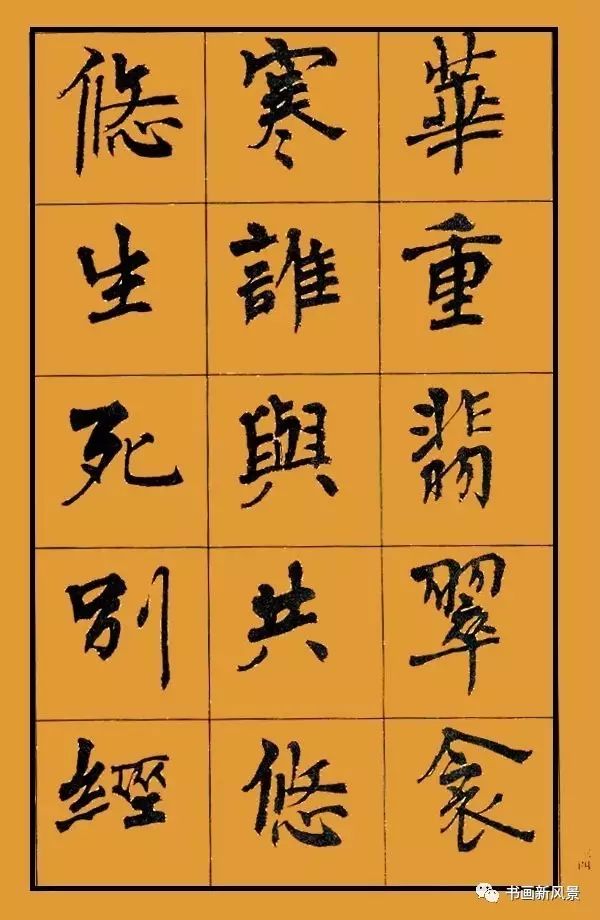 華重翡翠衾
寒誰與共悠
悠生死別經
书画新风景